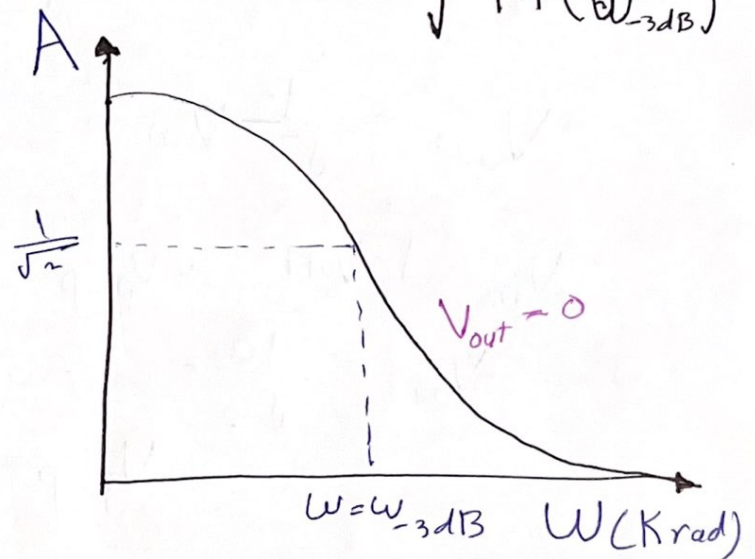 √ 1 + (ω-3dB)
A
1/√2
Vout = 0
ω=ω-3dB
ω(Krad)